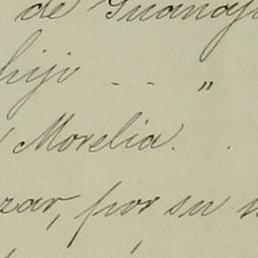 de Guanaj
hijo - - "
Morelia.
zar, por su